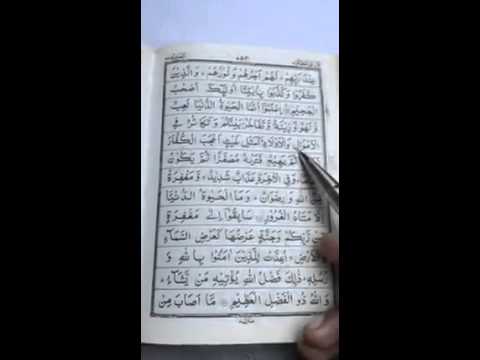 عِنْدَ رَبِّهِمْ ؕ لَهُمْ اَجْرُهُمْ وَ نُوْرُهُمْ ؕ وَالَّذِيْنَ
كَفَرُوْا وَ كَذَّبُوْا بِاٰيٰتِنَاۤ اُولٰٓئِكَ اَصْحٰبُ
الْجَحِيْمِ اِعْلَمُوْۤا اَنَّمَا الْحَيٰوةُ الدُّنْيَا لَعِبٌ
وَّ لَهْوٌ وَّ زِيْنَةٌ وَّ تَفَاخُرٌۢ بَيْنَكُمْ وَ تَكَاثُرٌ فِي
الْاَمْوَالِ وَالْاَوْلَادِ كَمَثَلِ غَيْثٍ اَعْجَبَ الْكُفَّارَ
ثُمَّ يَهِيْجُ فَتَرٰىهُ مُصْفَرًّا ثُمَّ يَكُوْنُ
وَفِي الْاٰخِرَةِ عَذَابٌ شَدِيْدٌ وَّ مَغْفِرَةٌ
مِّنَ اللّٰهِ وَ رِضْوَانٌ ؕ وَ مَا الْحَيٰوةُ الدُّنْيَاۤ
اِلَّا مَتَاعُ الْغُرُوْرِ سَابِقُوْۤا اِلٰى مَغْفِرَةٍ
مِّنْ رَّبِّكُمْ وَجَنَّةٍ عَرْضُهَا كَعَرْضِ السَّمَآءِ
وَالْاَرْضِ اُعِدَّتْ لِلَّذِيْنَ اٰمَنُوْا بِاللّٰهِ وَ
رُسُلِهٖ ؕ ذٰلِكَ فَضْلُ اللّٰهِ يُؤْتِيْهِ مَنْ يَّشَآءُ ؕ
وَاللّٰهُ ذُو الْفَضْلِ الْعَظِيْمِ مَاۤ اَصَابَ مِنْ